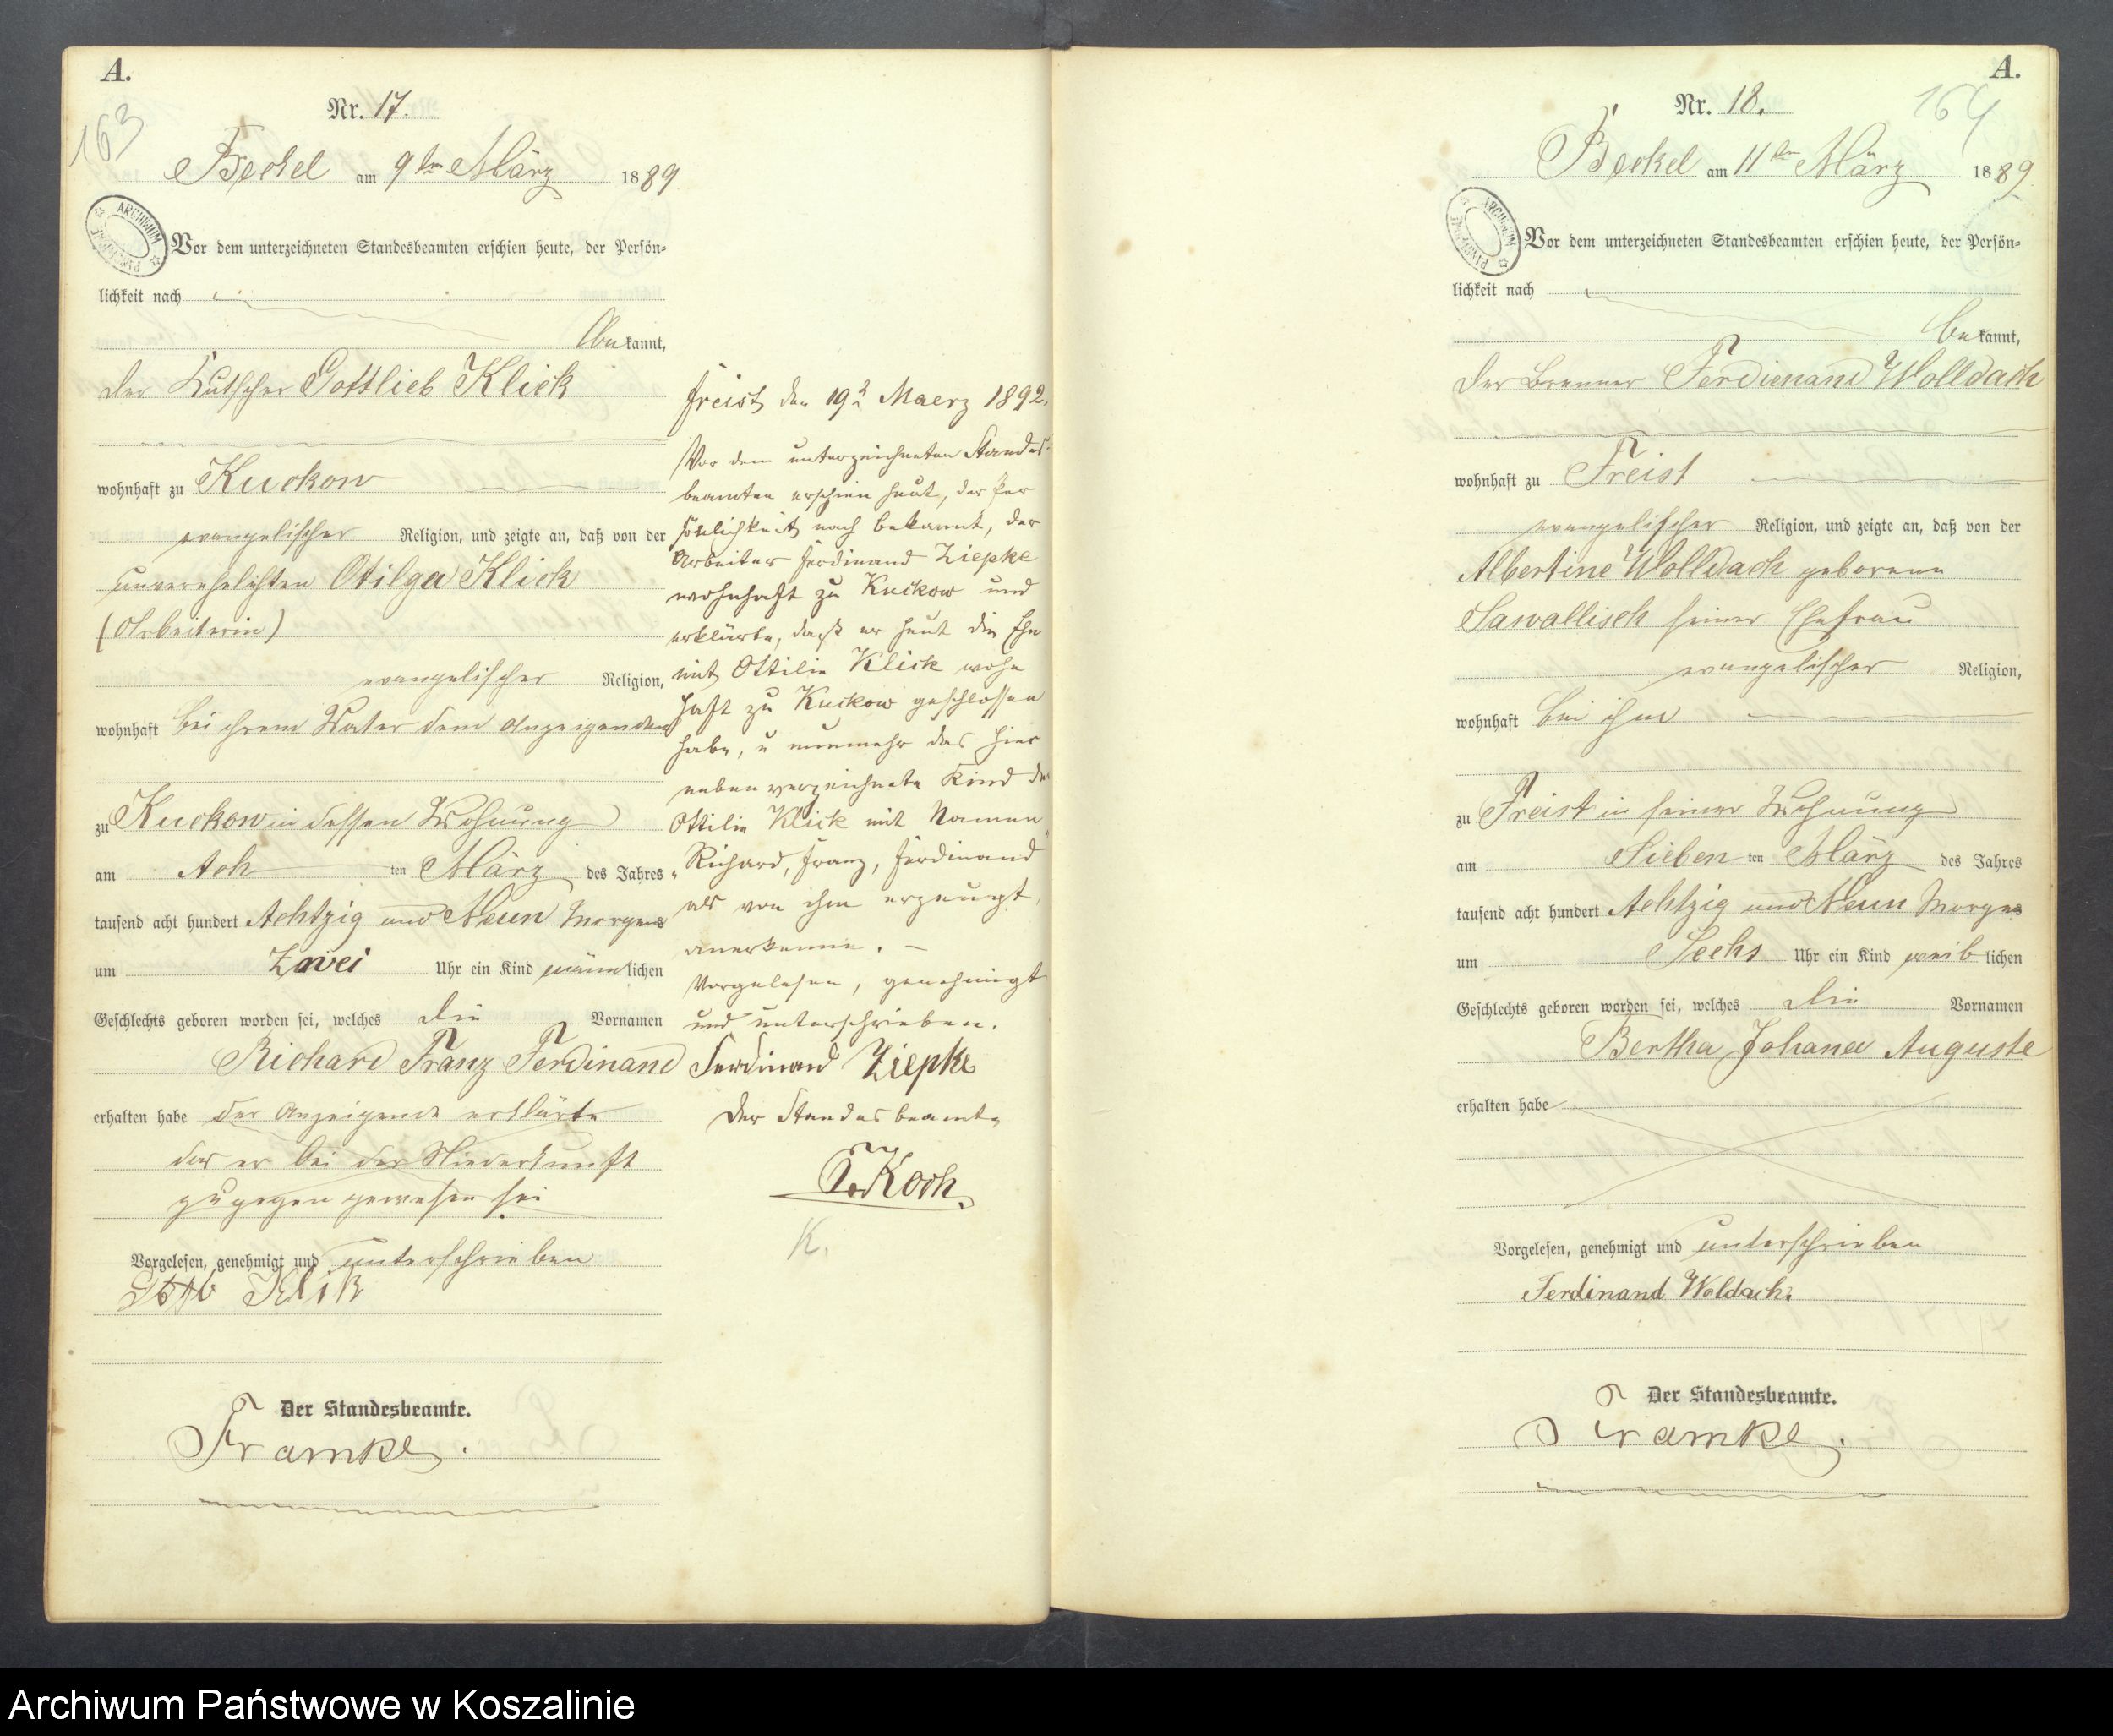 A.
163
Nr. 17.
Beckel am 9ten März 1889
ARCHIWUM PAŃSTWOWE
Vor dem unterzeichneten Standesbeamten erschien heute, der Persön-
lichkeit nach
bekannt,
der Kutscher Gottlieb Klick
wohnhaft zu Kuckow
evangelischer Religion, und zeigte an, daß von der
unverehelichten Otilga Klick
(Arbeiterin)
evangelischer Religion,
wohnhaft bei ihrem Vater dem Anzeigenden
zu Kuckow in dessen Wohnung
am Ach ten März des Jahres
tausend acht hundert Achtzig und Neun Morgens
um Zwei Uhr ein Kind männlichen
Geschlechts geboren worden sei, welches die Vornamen
Richard Franz Ferdinand
erhalten habe der Anzeigende erklärte
das er bei der Niederkunft
zugegen gewesen sei
Vorgelesen, genehmigt und unterschrieben
Klick
Der Standesbeamte.
Framke.
Freist, den 19t Maerz 1892.
Vor dem unterzeichneten Standes-
beamten erschien heut, der Per
sönlichkeit nach bekannt, der
Arbeiter Ferdinand Ziepke
wohnhaft zu Kuckow und
erklärte, daß er heut die Ehe
mit Ottilie Klick wohn
haft zu Kuckow geschlossen
habe, u nunmehr das hier
neben verzeichnete Kind der
Ottilie Klick mit Namen
"Richard, Franz, Ferdinand"
als von ihm erzeugt,
anerkenne. –
Vorgelesen, genehmigt
und unterschrieben.
Ferdinand Ziepke
Der Standesbeamte
Koch.
K.
A.
164
Nr. 18.
Beckel am 11ten März 1889.
ARCHIWUM PAŃSTWOWE
Vor dem unterzeichneten Standesbeamten erschien heute, der Persön-
lichkeit nach
bekannt,
der Brenner Ferdienand Wolldach
wohnhaft zu Freist
evangelischer Religion, und zeigte an, daß von der
Albertine Wolldach geborene
Sawallisch seiner Ehefrau
evangelischer Religion,
wohnhaft bei ihm
zu Freist in seiner Wohnung
am Sieben ten März des Jahres
tausend acht hundert Achtzig und Neun Morgens
um Sechs Uhr ein Kind weiblichen
Geschlechts geboren worden sei, welches die Vornamen
Bertha Johana Auguste
erhalten habe
Vorgelesen, genehmigt und unterschrieben
Ferdinand Woldach.
Der Standesbeamte.
Framke.
Archiwum Państwowe w Koszalinie